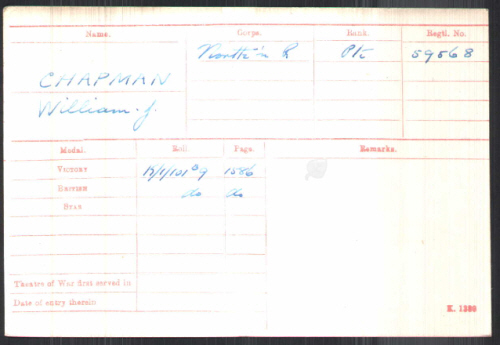 Name. Corps. Rank. Regtl. No.
CHAPMAN North'n R Pte 59568
William. J.
Medal. Roll Page. Remarks.
VICTORY K/1/101 B9 1586
BRITISH do do
STAR
Theatre of War first served in
Date of entry therein
K. 1380